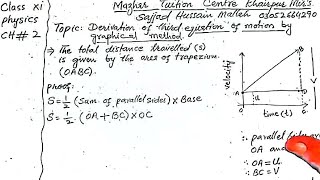 Class XI
physics
CH# 2
Mazhar Tuition Centre Khairpur Mir's
Sajjad Hussain Mallah 03052664290
Topic: Derivation of Third equation of motion by
graphical method.
⇒ The total distance travelled (s)
is given by the area of trapezium
(OABC).
PROOF:
S = 1/2 (Sum of parallel sides) × Base
S = 1/2 (OA + BC) × OC
velocity
B
A
D
u
V
O
time (t)
C
∴ parallel sides
OA and
∴ OA = U
∴ BC = V